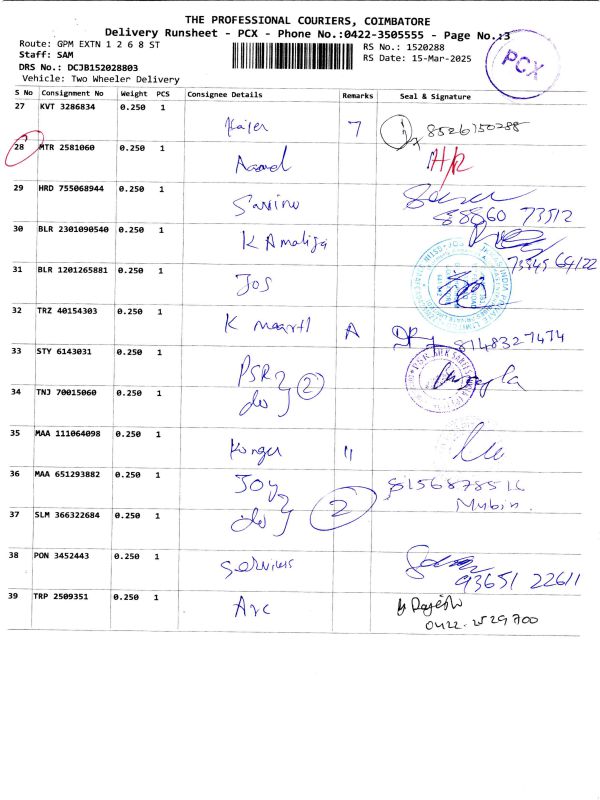 THE PROFESSIONAL COURIERS, COIMBATORE
Delivery Runsheet - PCX - Phone No.:0422-3505555 - Page No.:3
Route: GPM EXTN 1 2 6 8 ST
RS No.: 1520288
Staff: SAM
RS Date: 15-Mar-2025
DRS No.: DCJB152028803
Vehicle: Two Wheeler Delivery
PCX
S No Consignment No Weight PCS Consignee Details Remarks Seal & Signature
27 KVT 3286834 0.250 1 7 8526150288
28 MTR 2581060 0.250 1 H/R
29 HRD 755068944 0.250 1
88860 73512
30 BLR 2301090540 0.250 1
31 BLR 1201265881 0.250 1 Jos
32 TRZ 40154303 0.250 1 K A 8148327474
33 STY 6143031 0.250 1 PSR 2
34 TNJ 70015060 0.250 1 do
35 MAA 111064098 0.250 1 Konger "
36 MAA 651293882 0.250 1 Joy
Mubin.
37 SLM 366322684 0.250 1 do 2
38 PON 3452443 0.250 1 services
93651 22611
39 TRP 2509351 0.250 1 Arc Rajesh
0422-2529700